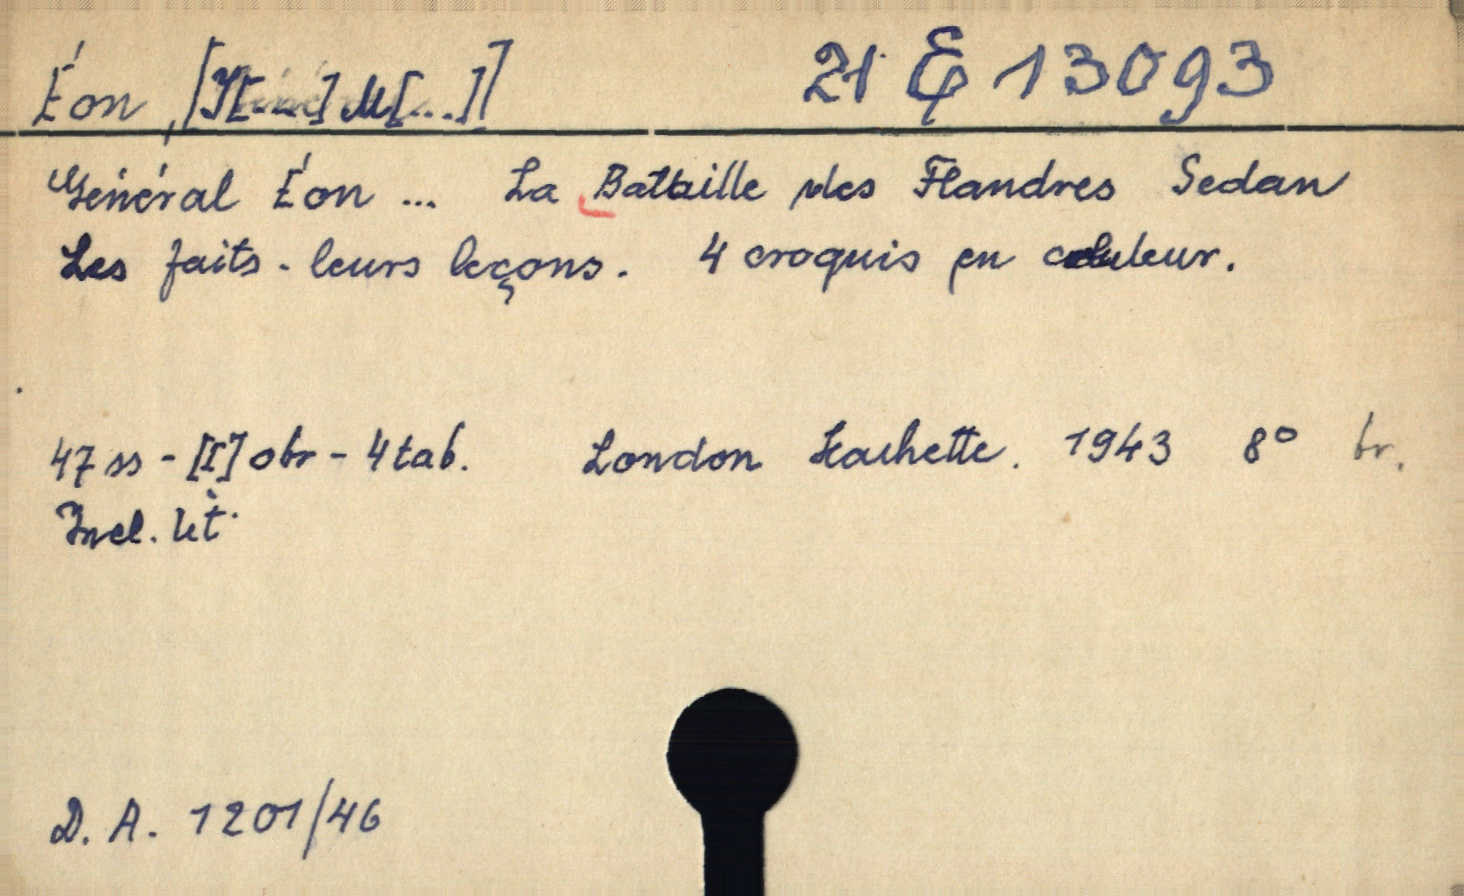 Éon, [J[...] M[...]] 21 E 13093
Général Éon ... La Bataille des Flandres Sedan
Les faits - leurs leçons. 4 croquis en couleur.
47 ss - [I] obr - 4 tab. London Hachette. 1943 8° br.
D. A. 1201/46